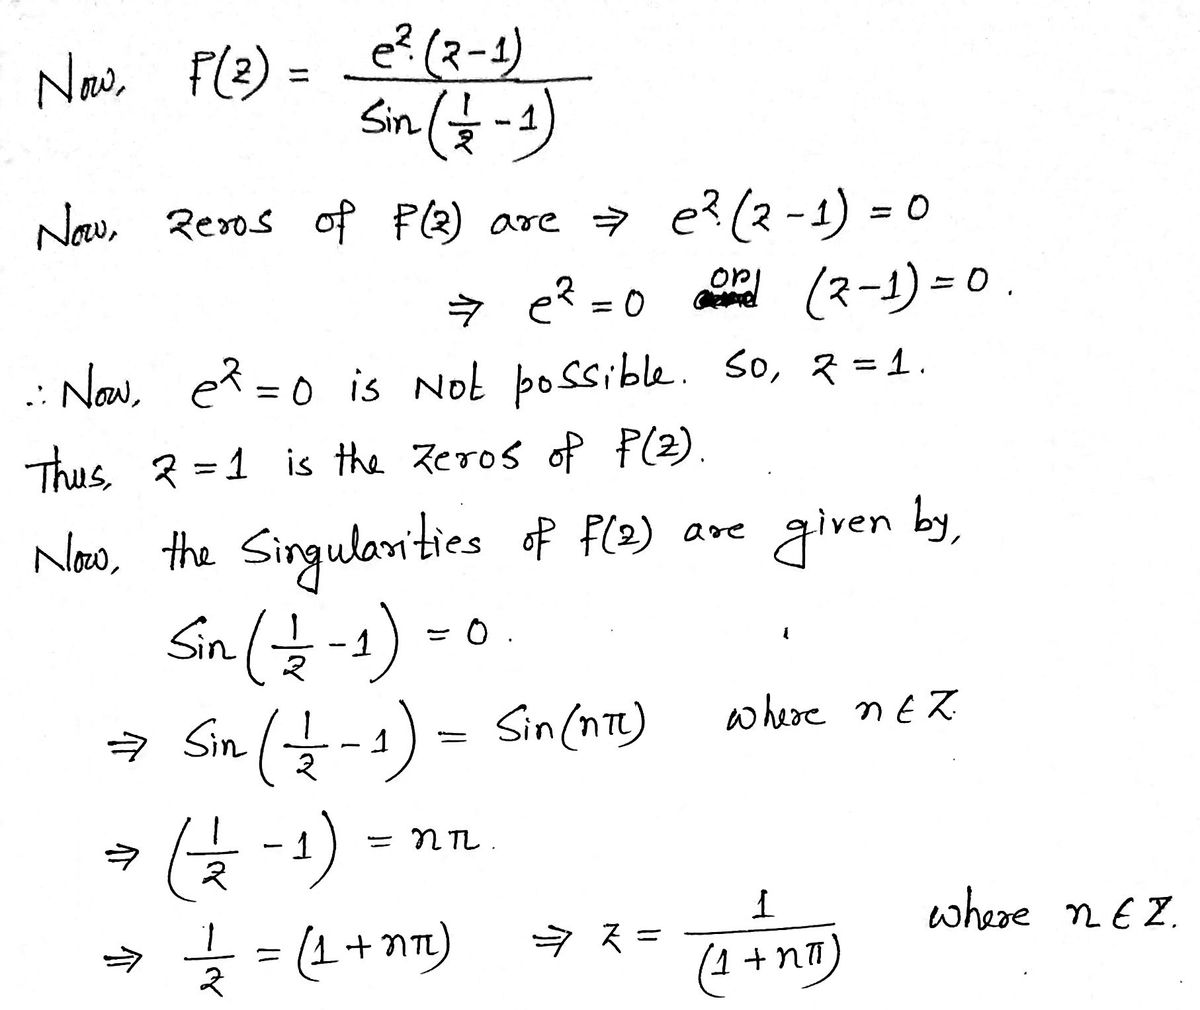 Now, F(z) = e^z.(z-1) / Sin(1/z - 1)
Now, Zeros of F(z) are ⇒ e^z.(z-1) = 0
⇒ e^z = 0 or (z-1) = 0.
∴ Now, e^z = 0 is Not possible. So, z = 1.
Thus, z = 1 is the Zeros of F(z).
Now, the Singularities of F(z) are given by,
Sin(1/z - 1) = 0.
⇒ Sin(1/z - 1) = Sin(nπ) where n ∈ Z
⇒ (1/z - 1) = nπ.
⇒ 1/z = (1+nπ) ⇒ z = 1/(1+nπ) where n ∈ Z.